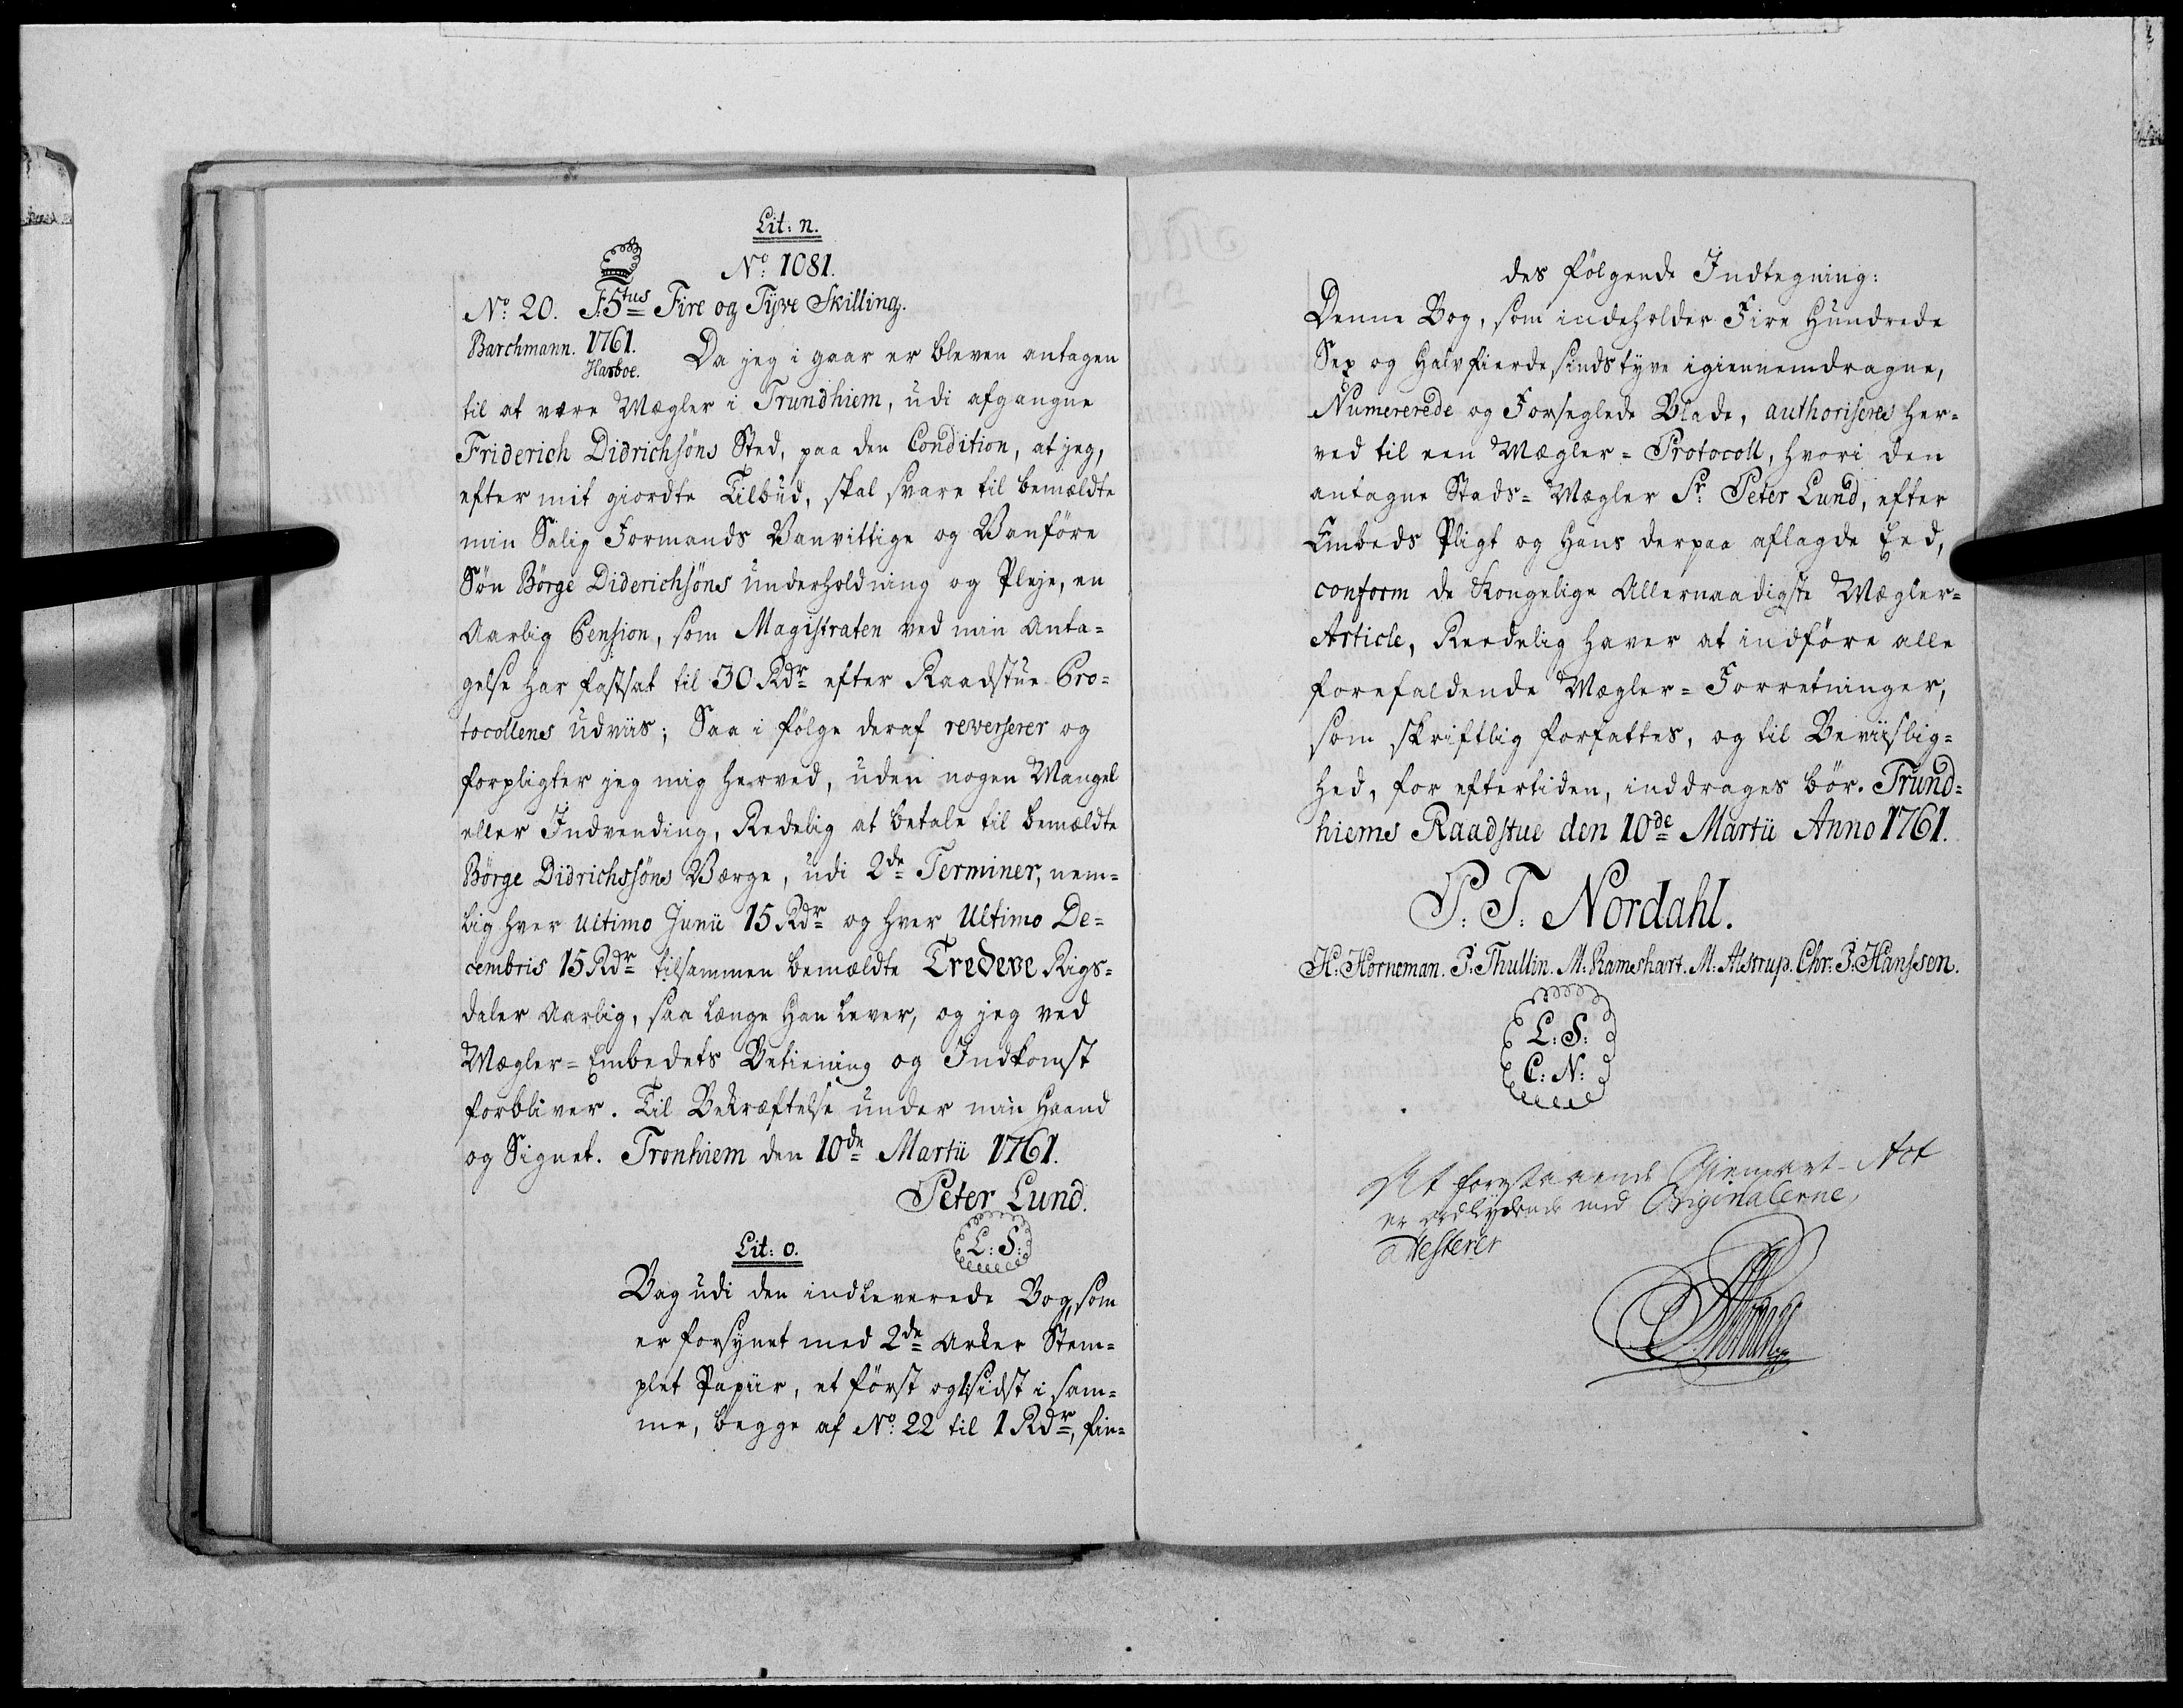 Lit: n.
No: 1081.
No: 20. F.5tus Fire og Tyve Skilling.
Barchmann. 1761.
Harboe.
Da jeg i gaar er bleven antagen
til at være Mægler i Trundhiem, udi afgangne
Friderich Didrichsöns Sted, paa den Condition, at jeg,
efter mit giordte Tilbud, skal svare til bemældte
min Salig Formands Vanvittige og Vanföre
Sön Börge Diderichsöns underholdning og Pleje, en
Aarlig Pension, som Magistraten ved min Anta=
gelse har fastsat til 30 Rdr efter Raadstue Pro=
tocollens udviis; Saa i fölge deraf reverserer og
forpligter jeg mig herved, uden nogen Mangel
eller Indvending, Redelig at betale til bemældte
Börge Didrichssöns Værge, udi 2de Terminer, nem=
lig hver ultimo Junii 15 Rdr og hver Ultimo De=
cembris 15 Rdr tilsammen bemældte Tredeve Rigs=
daler Aarlig, saa længe Han lever, og jeg ved
Mægler=Embedets Betiening og Indkomst
forbliver. Til Bekræftelse under min Haand
og Signet. Tronhiem den 10de Martii 1761.
Peter Lund.
L: S:
Lit: o.
Bag udi den indleverede Bog, som
er forsynet med 2de Arker Stem=
plet Papiir, et först og 1 sidst i sam=
me, begge af No: 22 til 1 Rdr, fin=
des fölgende Indtegning:
Denne Bog, som indeholder Fire Hundrede
Sex og Halvfierdesindstyve igiennemdragne,
Numererede og Forseglede Blade, authoriseres her=
ved til een Mægler=Protocoll, hvori den
antagne Stads=Mægler Sr Peter Lund, efter
Embeds Pligt og Hans derpaa aflagde Eed,
conform de Kongelige Allernaadigste Mægler=
Article, Reedelig haver at indföre alle
forefaldende Mægler=Forretninger,
som skriftlig forfattes, og til Beviislig=
hed, for eftertiden, inddrages bör. Trund=
hiems Raadstue den 10de Martii Anno 1761.
P: T: Nordahl.
H: Horneman. P: Thullin. M: Rameshart. M: Alstrup. Chr: P: Hanssen.
L: S:
C: N:
At forestaaende Gienpart-Act
er ordlydende med Originalerne,
attesterer